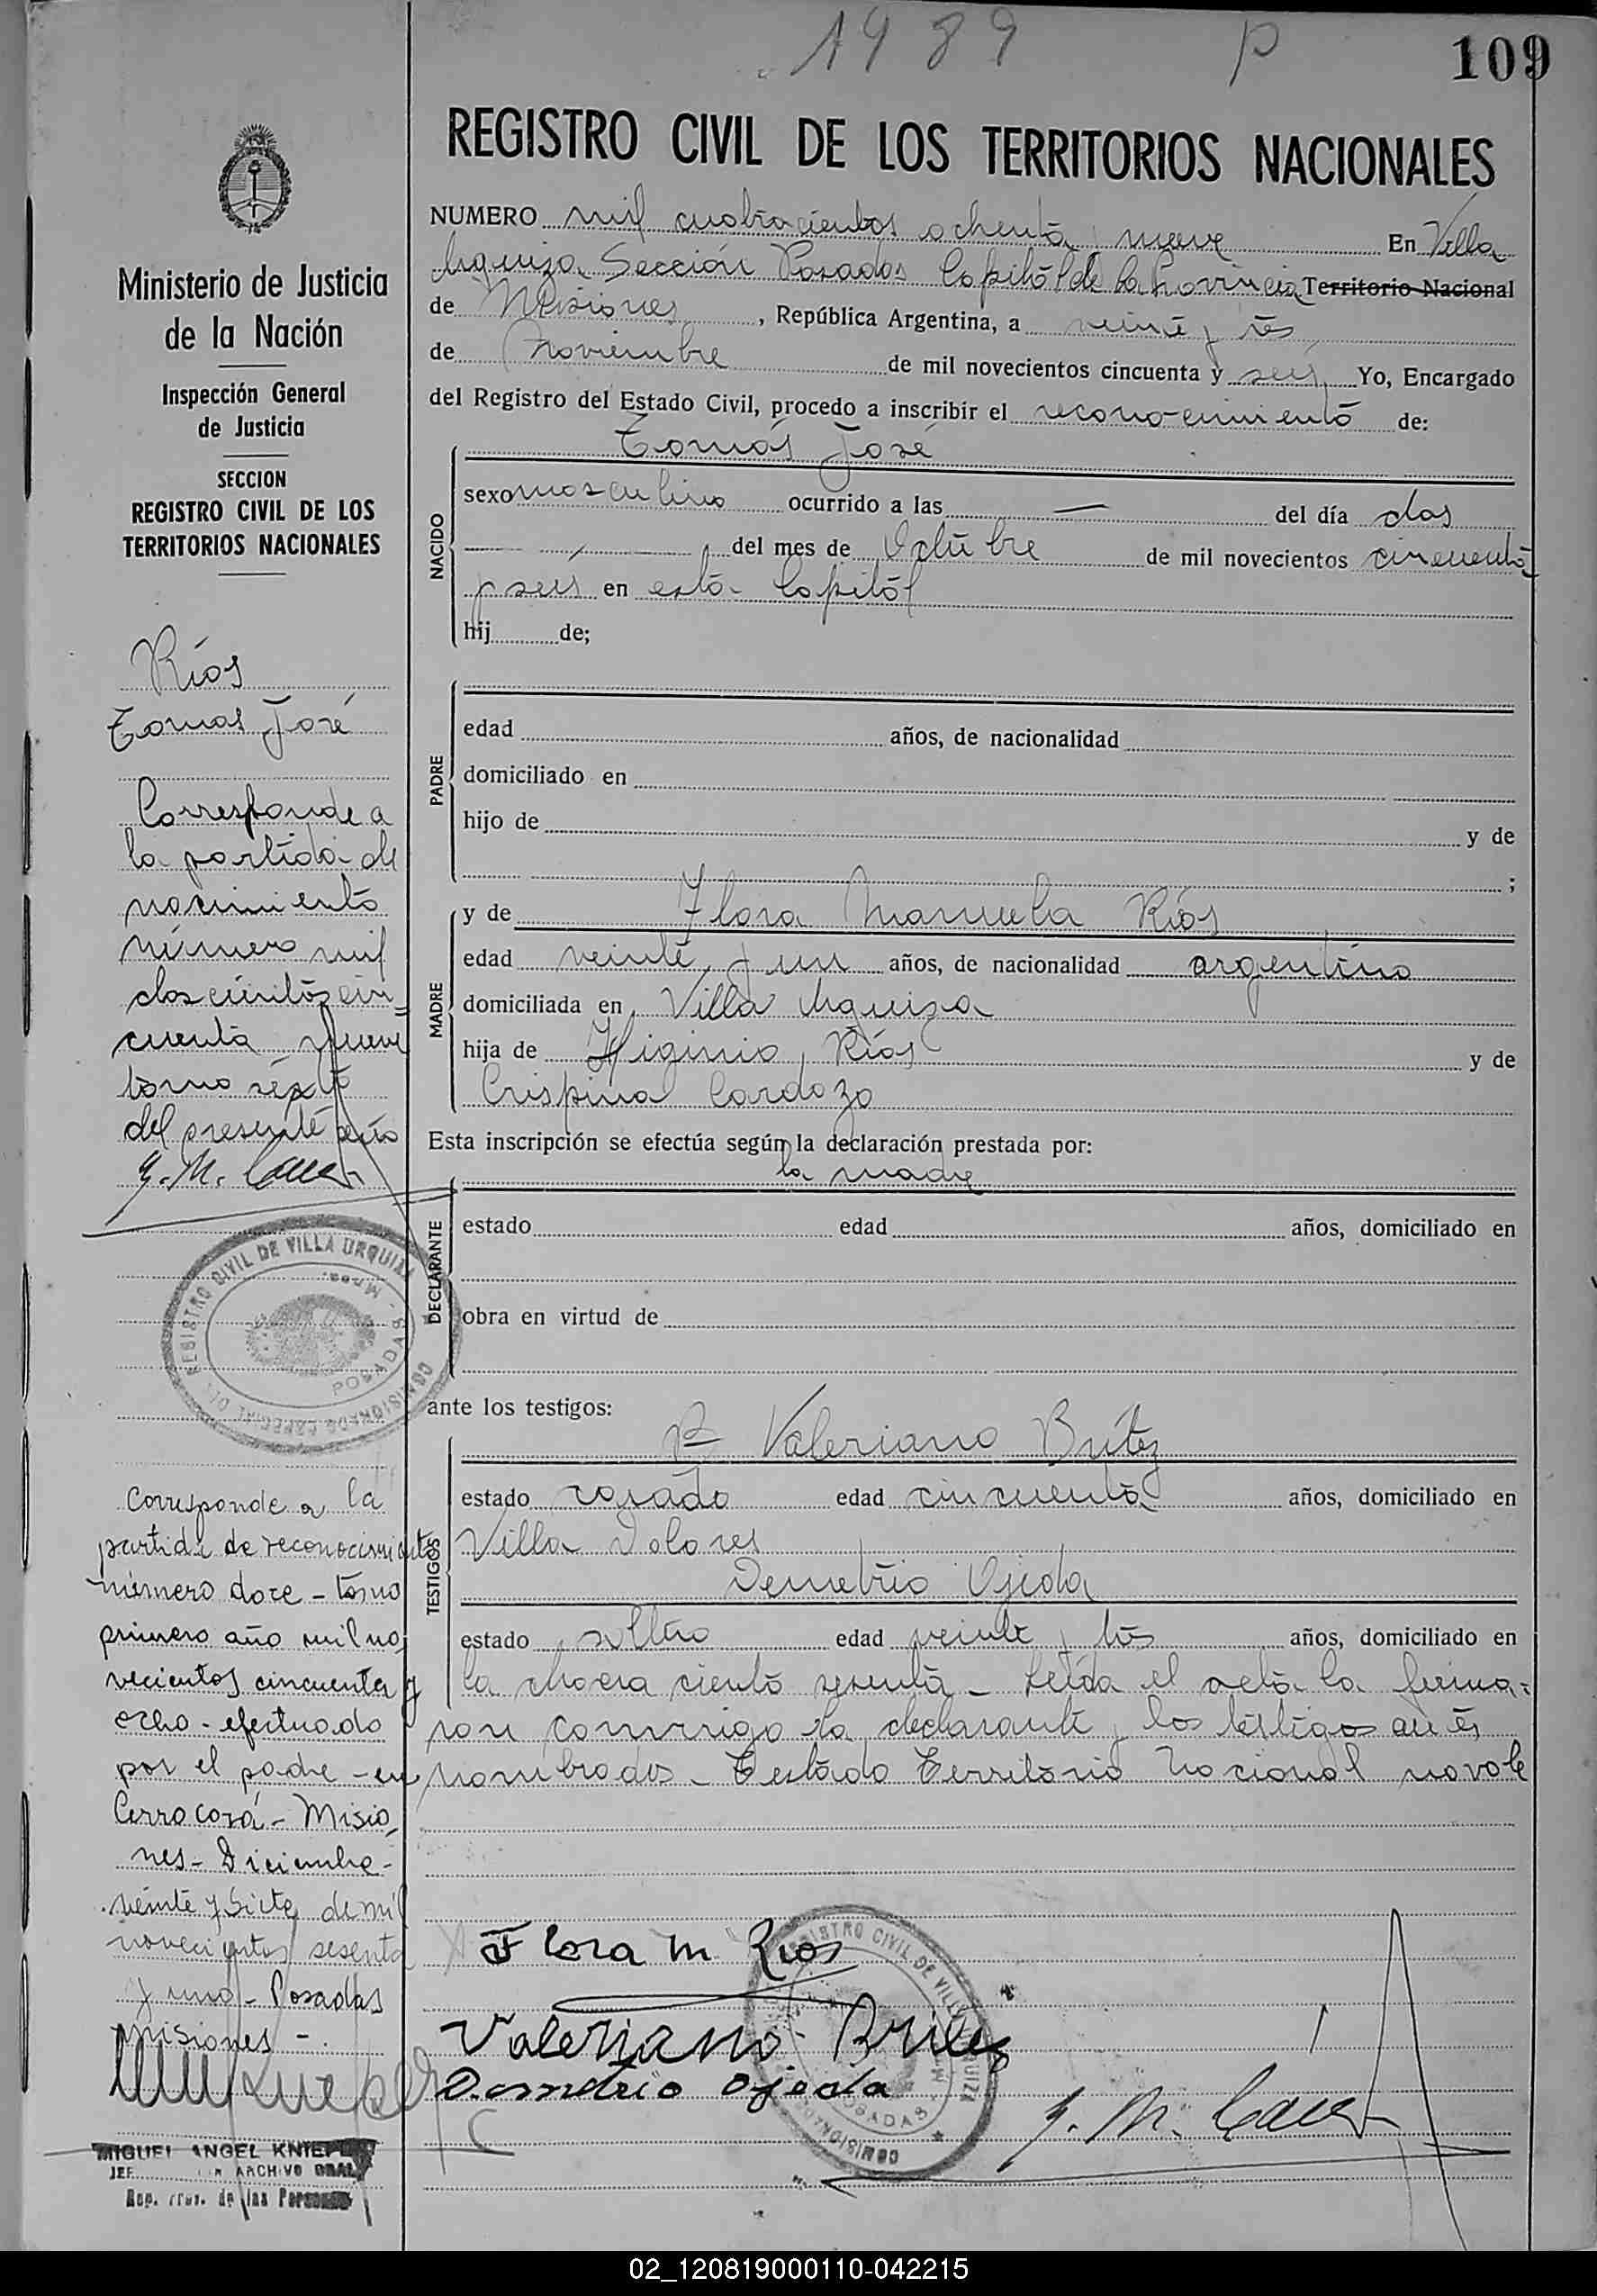 1489 P 109
REGISTRO CIVIL DE LOS TERRITORIOS NACIONALES
NUMERO mil cuatrocientos ochenta y nueve En Villa
Urquiza Sección Posadas Capital de la Provincia Territorio Nacional
de Misiones, República Argentina, a veinte y tres
de noviembre de mil novecientos cincuenta y seis Yo, Encargado
del Registro del Estado Civil, procedo a inscribir el reconocimiento de:
Tomás José
NACIDO
sexo masculino ocurrido a las — del día dos
del mes de Octubre de mil novecientos cincuenta
y seis en esta Capital
hij de;
PADRE
edad años, de nacionalidad
domiciliado en
hijo de y de
;
MADRE
y de Flora Manuela Ríos
edad veinte y un años, de nacionalidad argentina
domiciliada en Villa Urquiza
hija de Higinio Ríos y de
Crispina Cardozo
Esta inscripción se efectúa según la declaración prestada por:
la madre
DECLARANTE
estado edad años, domiciliado en
obra en virtud de
ante los testigos:
TESTIGOS
Valeriano Britez
estado casado edad cincuenta años, domiciliado en
Villa Dolores
Demetrio Ojeda
estado soltero edad veinte y tres años, domiciliado en
la chacra ciento sesenta - Leída el acta la firma=
ron conmigo la declarante y los testigos antes
nombrados - Testado Territorio Nacional no vale
Flora M Rios
Valeriano Britez
Demetrio Ojeda
Ministerio de Justicia
de la Nación
Inspección General
de Justicia
SECCION
REGISTRO CIVIL DE LOS
TERRITORIOS NACIONALES
Ríos
Tomas José
Corresponde a
la partida de
nacimiento
número mil
doscientos cin=
cuenta y nueve
tomo sexto
del presente año
REGISTRO CIVIL DE VILLA URQUIZA
POSADAS - Mnes.
Corresponde a la
partida de reconocimiento
número doce - tomo
primero año mil no
vecientos cincuenta y
ocho - efectuado
por el padre - en
Cerro Corá - Misio
nes - Diciembre -
veinte y siete de mil
novecientos sesenta
y uno - Posadas
Misiones -
MIGUEL ANGEL
ARCHIVO GRAL
de las Personas
REGISTRO CIVIL DE VILLA URQUIZA
POSADAS
02_120819000110-042215